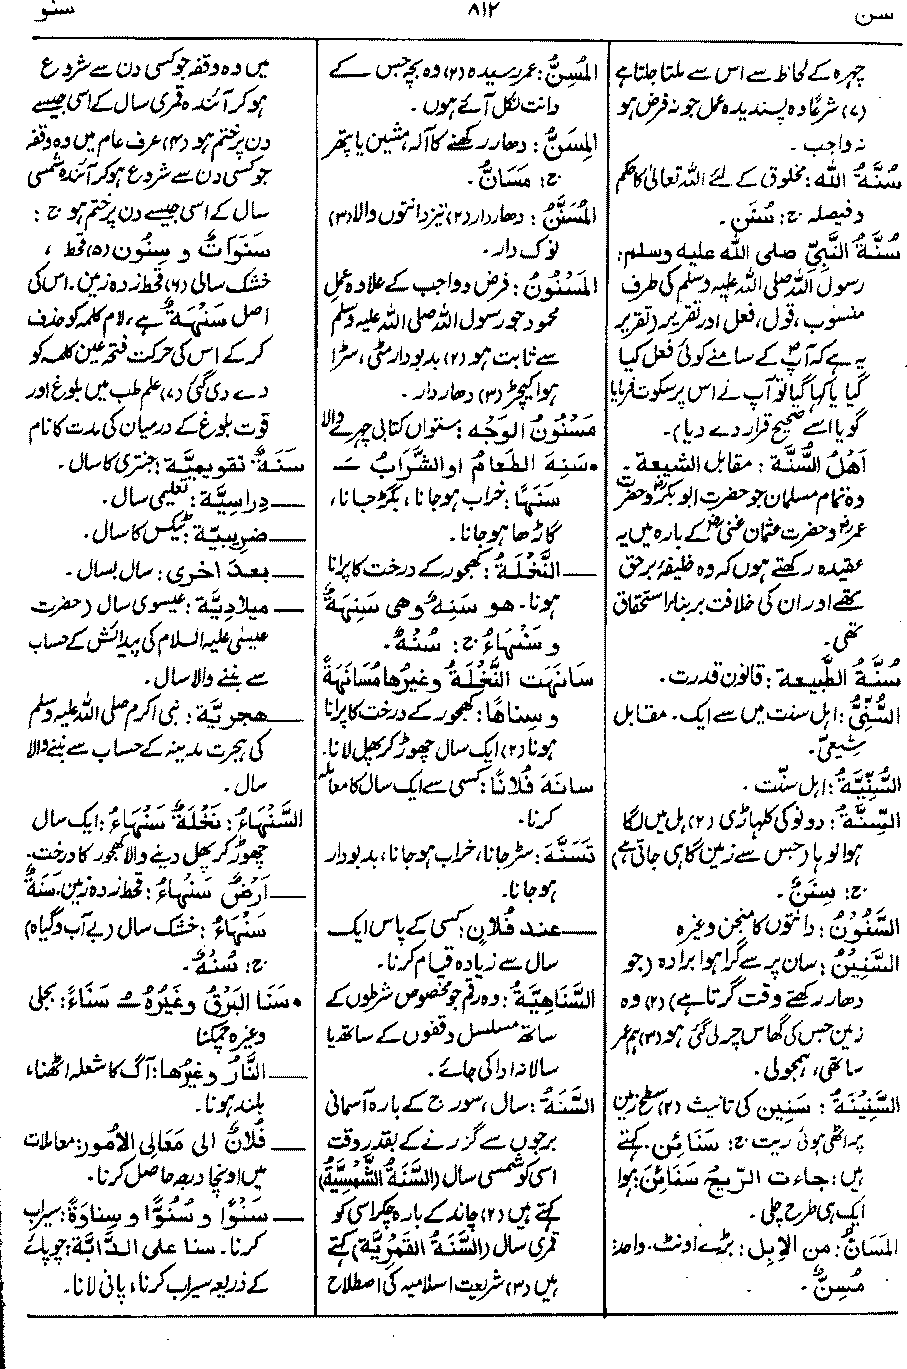 سن
۸۱۲
سنو
چہرہ کے لحاظ سے اس سے ملتا جلتا ہے
(۷) شرعًا وہ پسندیدہ عمل جو نہ فرض ہو
نہ واجب۔
سُنَّةُ الله: مخلوق کے لئے اللہ تعالیٰ کا حکم
و فیصلہ ج: سُنَن۔
سُنَّةُ النَّبِيّ صلى الله عليه وسلم:
رسول اللہ صلی اللہ علیہ وسلم کی طرف
منسوب، قول، فعل اور تقریر (تقریر
یہ ہے کہ آپؐ کے سامنے کوئی فعل کیا
گیا یا کہا گیا تو آپ نے اس پر سکوت فرمایا
گویا اسے صحیح قرار دے دیا)۔
اَهْلُ السُّنَّة: مقابل الشيعة۔
وہ تمام مسلمان جو حضرت ابو بکرؓ و حضرت
عمرؓ و حضرت عثمان غنیؓ کے بارہ میں یہ
عقیدہ رکھتے ہوں کہ وہ خلیفۂ برحق
تھے اور ان کی خلافت بر بناء استحقاق
تھی۔
سُنَّةُ الطَّبِيعة: قانون قدرت۔
السُّنِّيُّ: اہل سنت میں سے ایک۔ مقابل
شیعیّ۔
السُّنِّيَّةُ: اہل سنّت۔
السِّنَّةُ: دو نوکی کلہاڑی (۲) ہل میں لگا
ہوا لوہا (جس سے زمین گاہی جاتی ہے)
ج: سِنَنٌ۔
السَّنُوْنُ: دانتوں کا منجن وغیرہ
السَّنِيْنُ: سان پر سے گرا ہوا برادہ (جو
دھار رکھتے وقت گرتا ہے) (۲) وہ
زمین جس کی گھاس چرلی گئی ہو (۳) ہم عمر
ساتھی، ہمجولی۔
السَّنِيْنَةُ: سَنِين کی تانیث (۲) سطح زمین
پر اٹھی ہوئی ریت ج: سَنَائِن۔ کہتے
ہیں: جاءت الرِّيحُ سَنَائِنَ: ہوا
ایک ہی طرح چلی۔
المَسَانُّ: من الإبِل: بڑے اونٹ۔ واحد:
مُسِنٌّ۔
المُسِنُّ: عمر رسیدہ (۲) وہ بچہ جس کے
دانت نکل آئے ہوں۔
المِسَنُّ: دھار رکھنے کا آلہ مشین یا پتھر
ج: مَسَانُّ۔
المُسَنَّنُ: دھار دار (۲) تیز دانتوں والا (۳)
نوک دار۔
المَسْنُوْنُ: فرض و واجب کے علاوہ عملِ
محمود جو رسول اللہ صلی اللہ علیہ وسلم
سے ثابت ہو (۲) بدبودار مٹی، سڑا
ہوا کیچڑ (۳) دھار دار۔
مَسْنُوْنُ الوَجْه: ستواں کتابی چہرے والا
• سَنِهَ الطَّعَامُ اوالشَّرَابُ ــَـ
سَنَهًا: خراب ہو جانا، بگڑ جانا،
گاڑھا ہو جانا۔
ــــ النَّخْلَةُ: کھجور کے درخت کا پرانا
ہونا۔ هو سَنِهٌ وهی سَنِهَةٌ
و سَنْهَاءُ ج: سُنْهٌ۔
سَانَهَت النَّخْلَةُ وغيرُها مُسَانَهَةً
و سِناهًا: کھجور کے درخت کا پرانا
ہونا (۲) ایک سال چھوڑ کر پھل لانا۔
سانَهَ فُلانًا: کسی سے ایک سال کا معاملہ
کرنا۔
تَسَنَّهَ: سڑ جانا، خراب ہو جانا، بدبودار
ہو جانا۔
ــــ عند فُلانٍ: کسی کے پاس ایک
سال سے زیادہ قیام کرنا۔
السَّنَاهِيَّةُ: وہ رقم جو مخصوص شرطوں کے
ساتھ مسلسل وقفوں کے ساتھ یا
سالانہ ادا کی جائے۔
السَّنَةُ: سال، سورج کے بارہ آسمانی
برجوں سے گزرنے کے بقدر وقت
اسی کو شمسی سال (السَّنَةُ الشَّمْسِيَّةُ)
کہتے ہیں (۲) چاند کے بارہ چکر اسی کو
قمری سال (السَّنَةُ القَمَرِيَّة) کہتے
ہیں (۳) شریعت اسلامیہ کی اصطلاح
میں وہ وقفہ جو کسی دن سے شروع
ہو کر آئندہ قمری سال کے اسی جیسے
دن پر ختم ہو (۴) عرف عام میں وہ وقفہ
جو کسی دن سے شروع ہو کر آئندہ شمسی
سال کے اسی جیسے دن پر ختم ہو ج:
سَنَوَاتٌ و سِنُون (۵) قحط،
خشک سالی (۶) قحط زدہ زمین۔ اس کی
اصل سَنْهَةٌ ہے، لام کلمہ کو حذف
کرکے اس کی حرکت فتحہ عین کلمہ کو
دے دی گئی (۷) علم طب میں بلوغ اور
قوت بلوغ کے درمیان کی مدت کا نام
سَنَةٌ تقويميّة: جنتری کا سال۔
ــــ دِراسِيَّة: تعلیمی سال۔
ــــ ضريبيّة: ٹیکس کا سال۔
ــــ بعدَ اخرى: سال بسال۔
ــــ ميلاديَّة: عیسوی سال (حضرت
عیسیٰ علیہ السلام کی پیدائش کے حساب
سے بننے والا سال۔
ــــ هجريَّة: نبی اکرم صلی اللہ علیہ وسلم
کی ہجرت مدینہ کے حساب سے بننے والا
سال۔
السَّنْهَاءُ: نَخْلَةٌ سَنْهَاءُ: ایک سال
چھوڑ کر پھل دینے والا کھجور کا درخت۔
ــــ اَرْضٌ سَنْهاءُ: قحط زدہ زمین۔ سَنَةٌ
سَنْهَاءُ: خشک سال (بے آب و گیاہ)
ج: سُنْهٌ۔
• سَنَا البَرْقُ وغَيْرُهُ ــُـ سَنَاءً: بجلی
وغیرہ چمکنا
ــــ النَّارُ وغيرُها: آگ کا شعلہ اٹھنا،
بلند ہونا۔
ــــ فُلانٌ الى مَعَالِى الأمُور: معاملات
میں اونچا درجہ حاصل کرنا۔
ــــ سَنْوًا و سُنُوًّا و سِناوَةً: سیراب
کرنا۔ سنا على الدَّابَّة: چوپائے
کے ذریعہ سیراب کرنا، پانی لانا۔